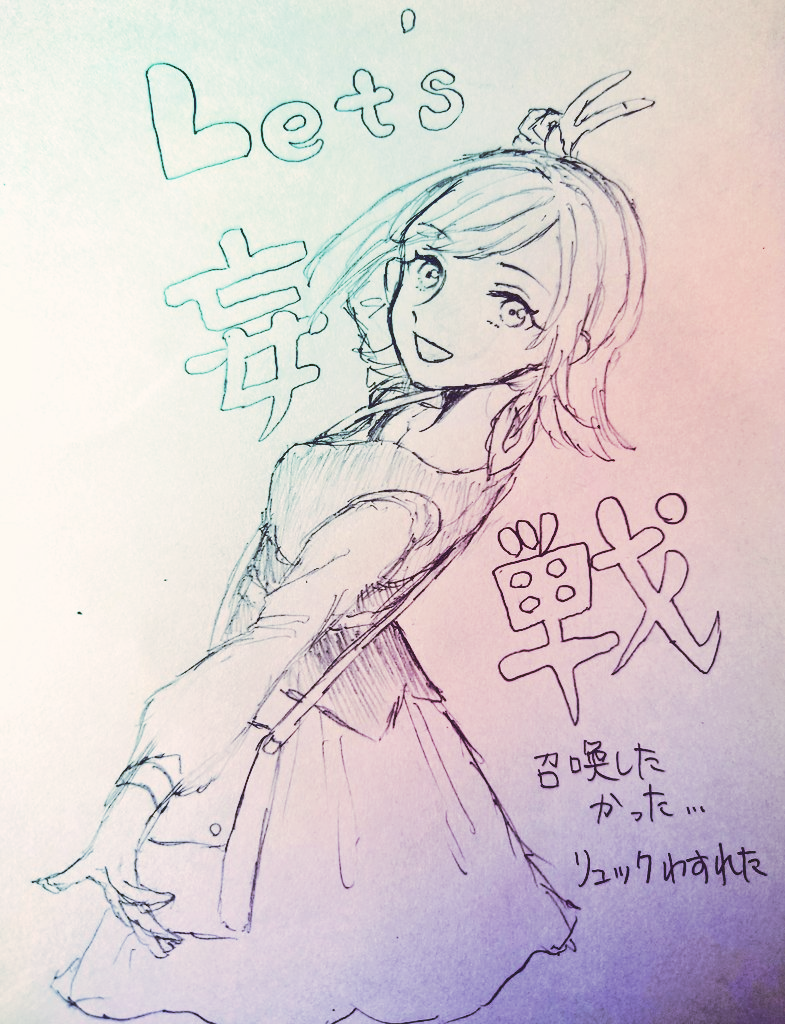 Let's
妄
戦
召喚した
かった...
リュックわすれた